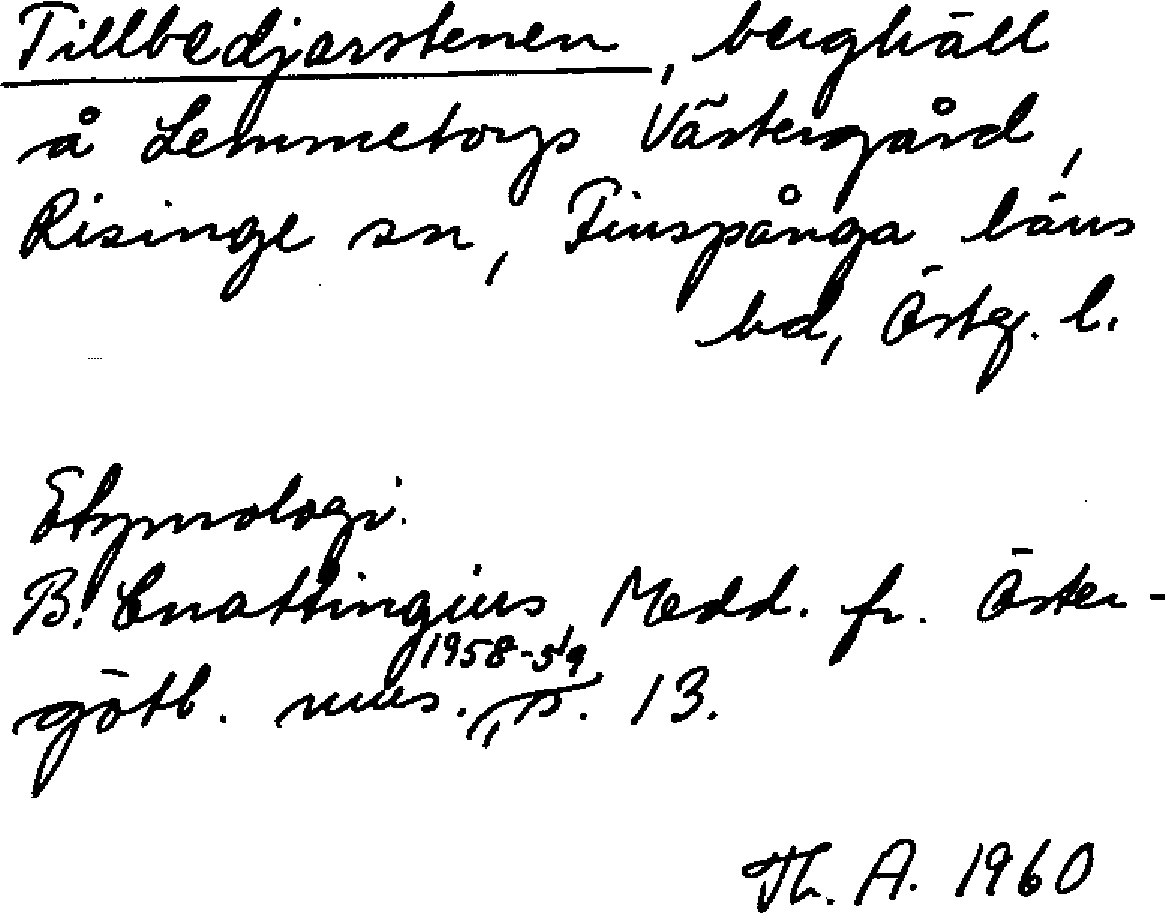 Tillbedjarstenen, berghäll
å Lemmetorps Västergård,
Risinge sn, Finspånga läns
hd, Österg. l.
Etymologi.
B. Cnattingius, Medd. fr. Öster-
götl. mus. 1958-59, s. 13.
Th. A. 1960